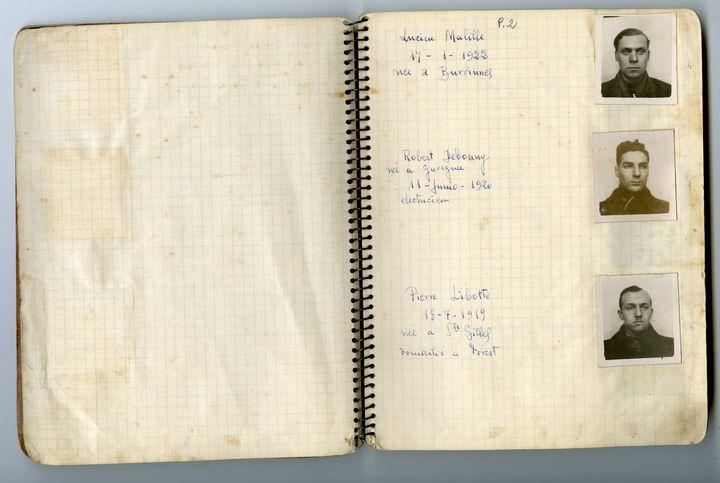 P.2
Lucien Malille
17 - 1 - 1922
neé a Burrinnes
Robert Debouny
neé a
11 - Junio - 1920
electricien
Pierre Libotte
18-7-1919
neé a Sts Gilles
domicilié a Forest